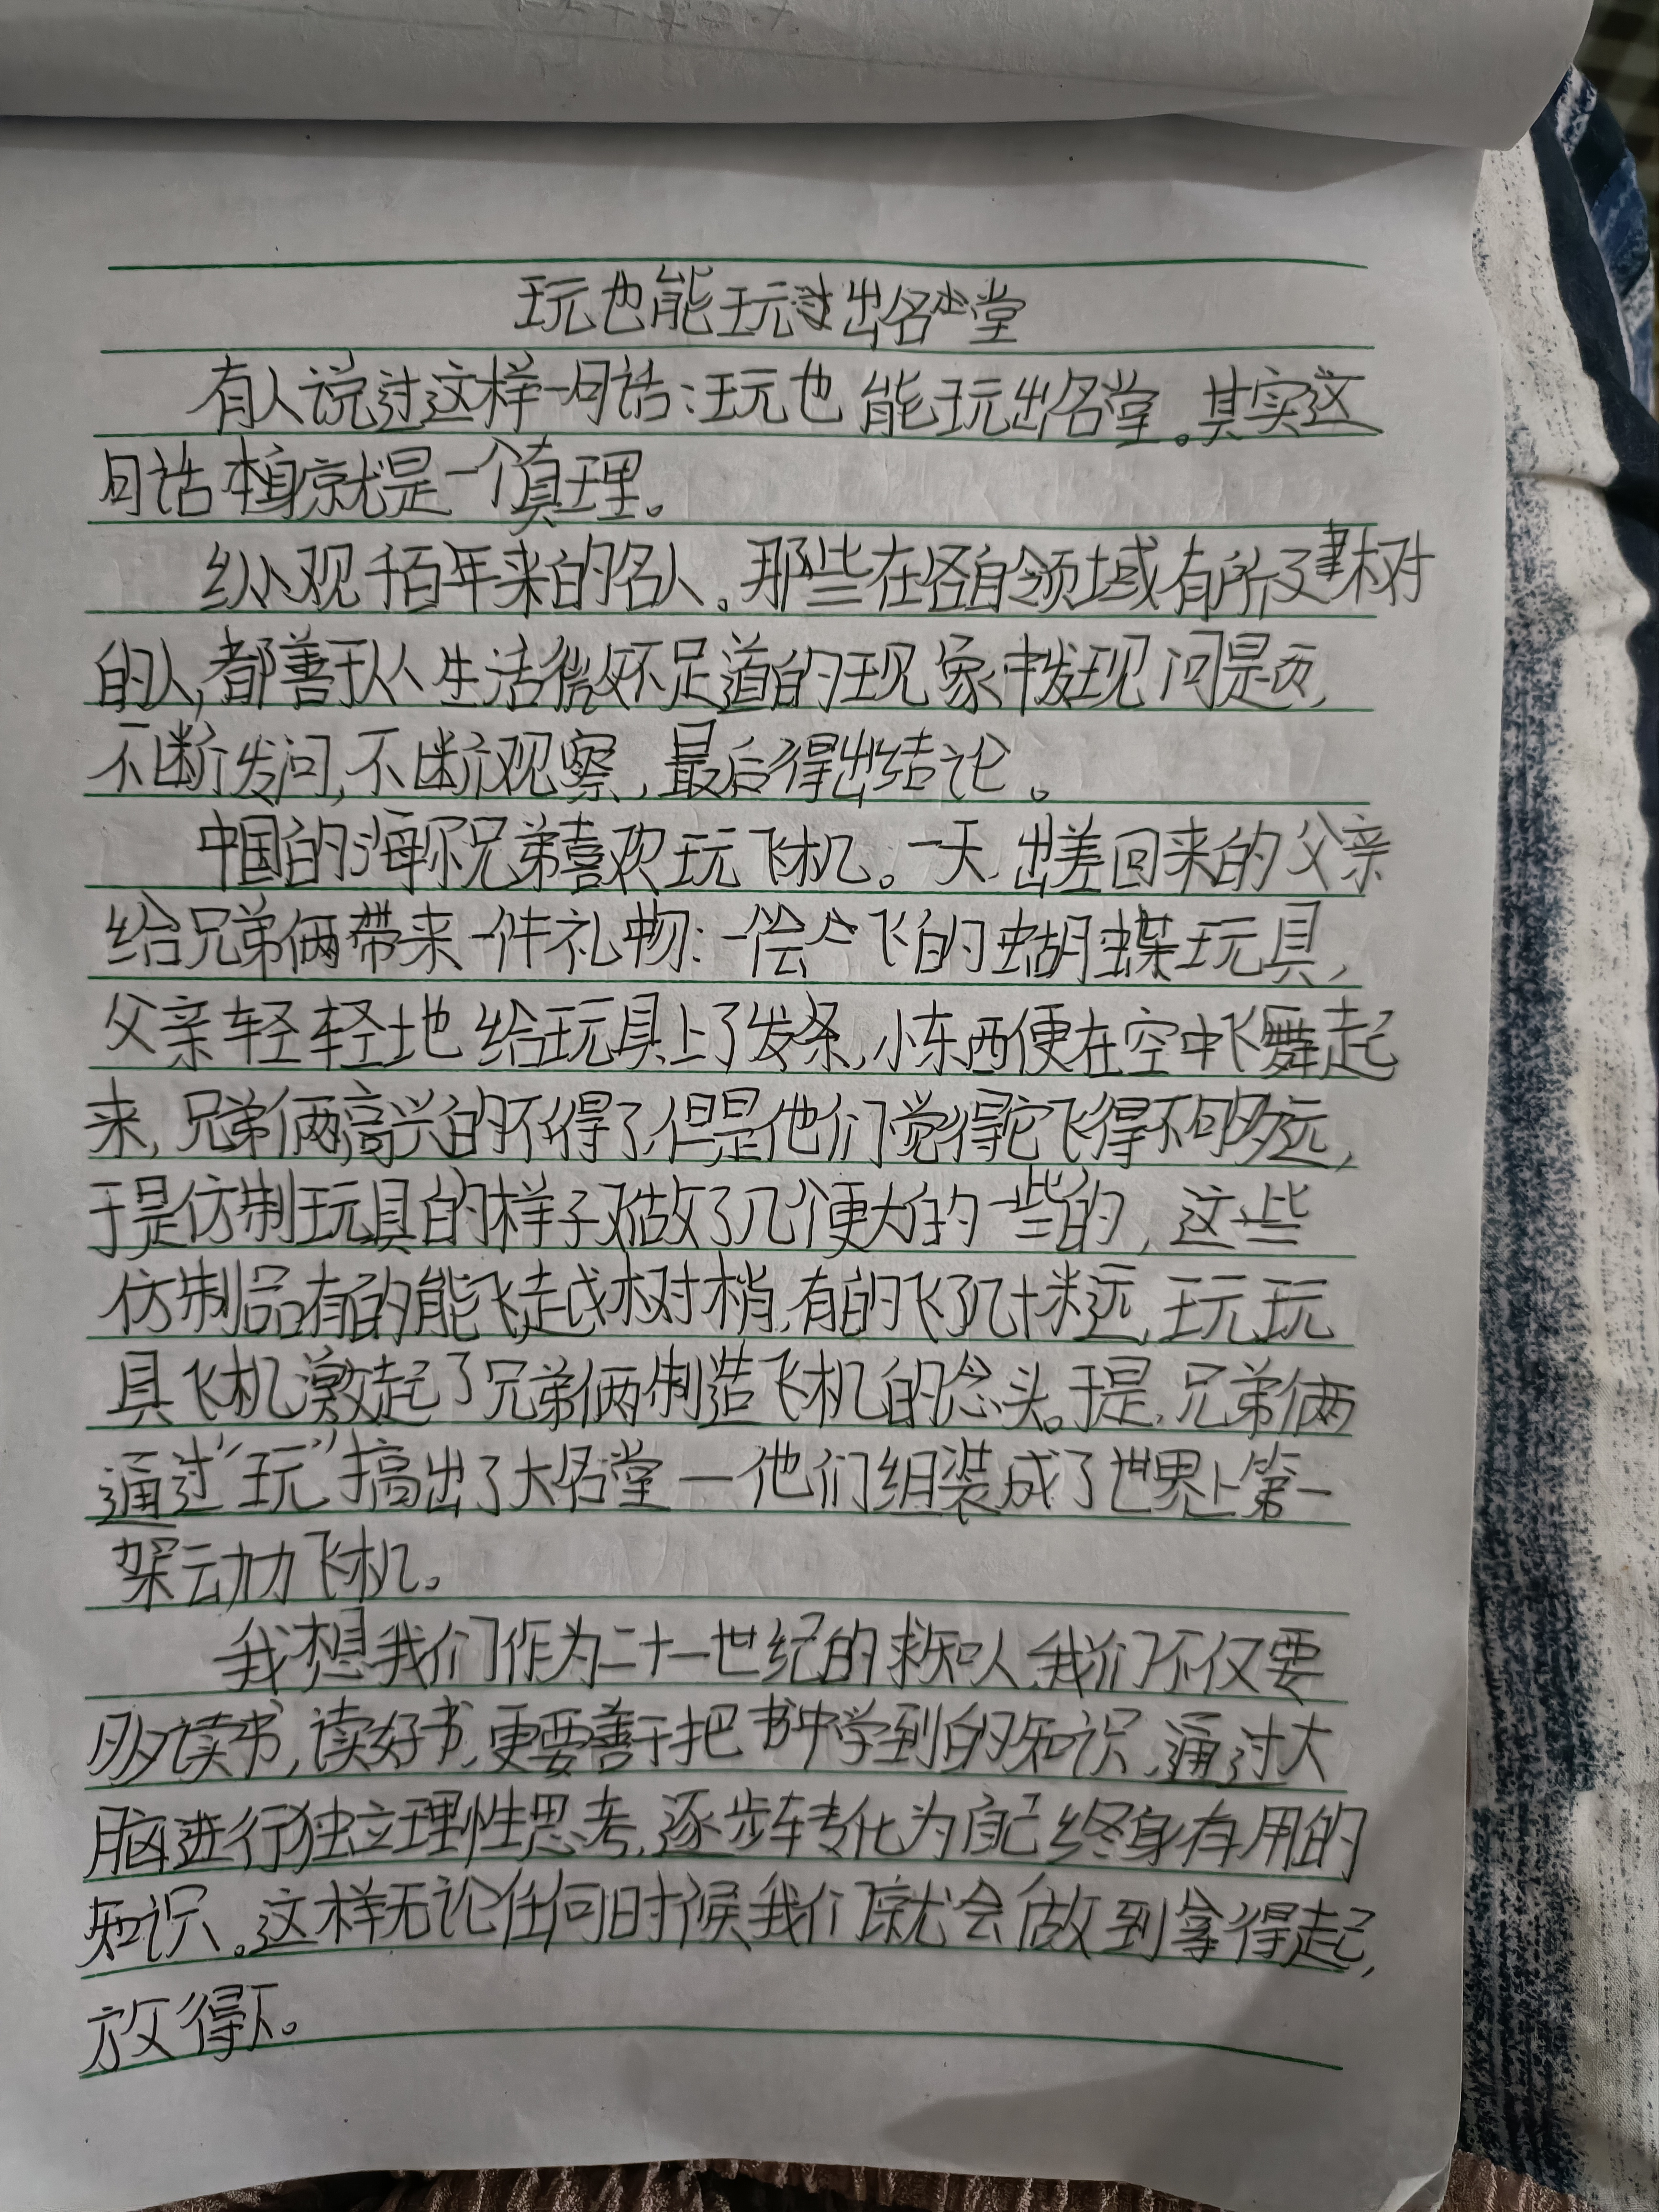 玩也能玩过出名堂
有人说过这样一句话:玩也能玩出名堂。其实这
句话本身就是一个真理。
纵观千百年来的名人。那些在各自领域有所建树
的人,都善于从生活微不足道的现象中发现问题,
不断发问,不断观察,最后得出结论。
中国的海尔兄弟喜欢玩飞机。一天,出差回来的父亲
给兄弟俩带来一件礼物:一会飞的蝴蝶玩具,
父亲轻轻地给玩具上了发条,小东西便在空中飞舞起
来,兄弟俩高兴的不得了,但是他们觉得它飞得不够远,
于是仿制玩具的样子又做了几个更大的一些的,这些
仿制品有的能飞越树梢,有的飞了几十米远,玩玩
具飞机激起了兄弟俩制造飞机的念头。于是,兄弟俩
通过“玩”搞出了大名堂—他们组装成了世界上第一
架动力飞机。
我想我们作为二十一世纪的求知人,我们不仅要
多读书,读好书,更要善于把书中学到的知识,通过大
脑进行独立理性思考,逐步转化为自己终身有用的
知识。这样无论任何时候我们就会做到拿得起,
放得下。